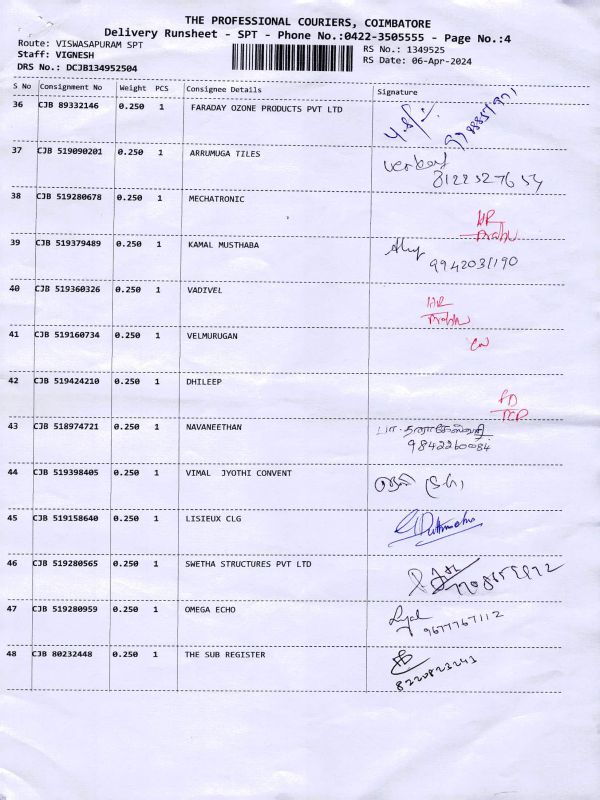 THE PROFESSIONAL COURIERS, COIMBATORE
Delivery Runsheet - SPT - Phone No.:0422-3505555 - Page No.:4
Route: VISWASAPURAM SPT
Staff: VIGNESH
DRS No.: DCJB134952504
RS No.: 1349525
RS Date: 06-Apr-2024
S No Consignment No Weight PCS Consignee Details Signature
36 CJB 89332146 0.250 1 FARADAY OZONE PRODUCTS PVT LTD
37 CJB 519090201 0.250 1 ARRUMUGA TILES
8122327654
38 CJB 519280678 0.250 1 MECHATRONIC
HR
Prabhu
39 CJB 519379489 0.250 1 KAMAL MUSTHABA
9942031190
40 CJB 519360326 0.250 1 VADIVEL
HR
Prabhu
41 CJB 519160734 0.250 1 VELMURUGAN
42 CJB 519424210 0.250 1 DHILEEP
43 CJB 518974721 0.250 1 NAVANEETHAN
9842260084
44 CJB 519398405 0.250 1 VIMAL JYOTHI CONVENT
45 CJB 519158640 0.250 1 LISIEUX CLG
46 CJB 519280565 0.250 1 SWETHA STRUCTURES PVT LTD
47 CJB 519280959 0.250 1 OMEGA ECHO
9677767112
48 CJB 80232448 0.250 1 THE SUB REGISTER
8220823243